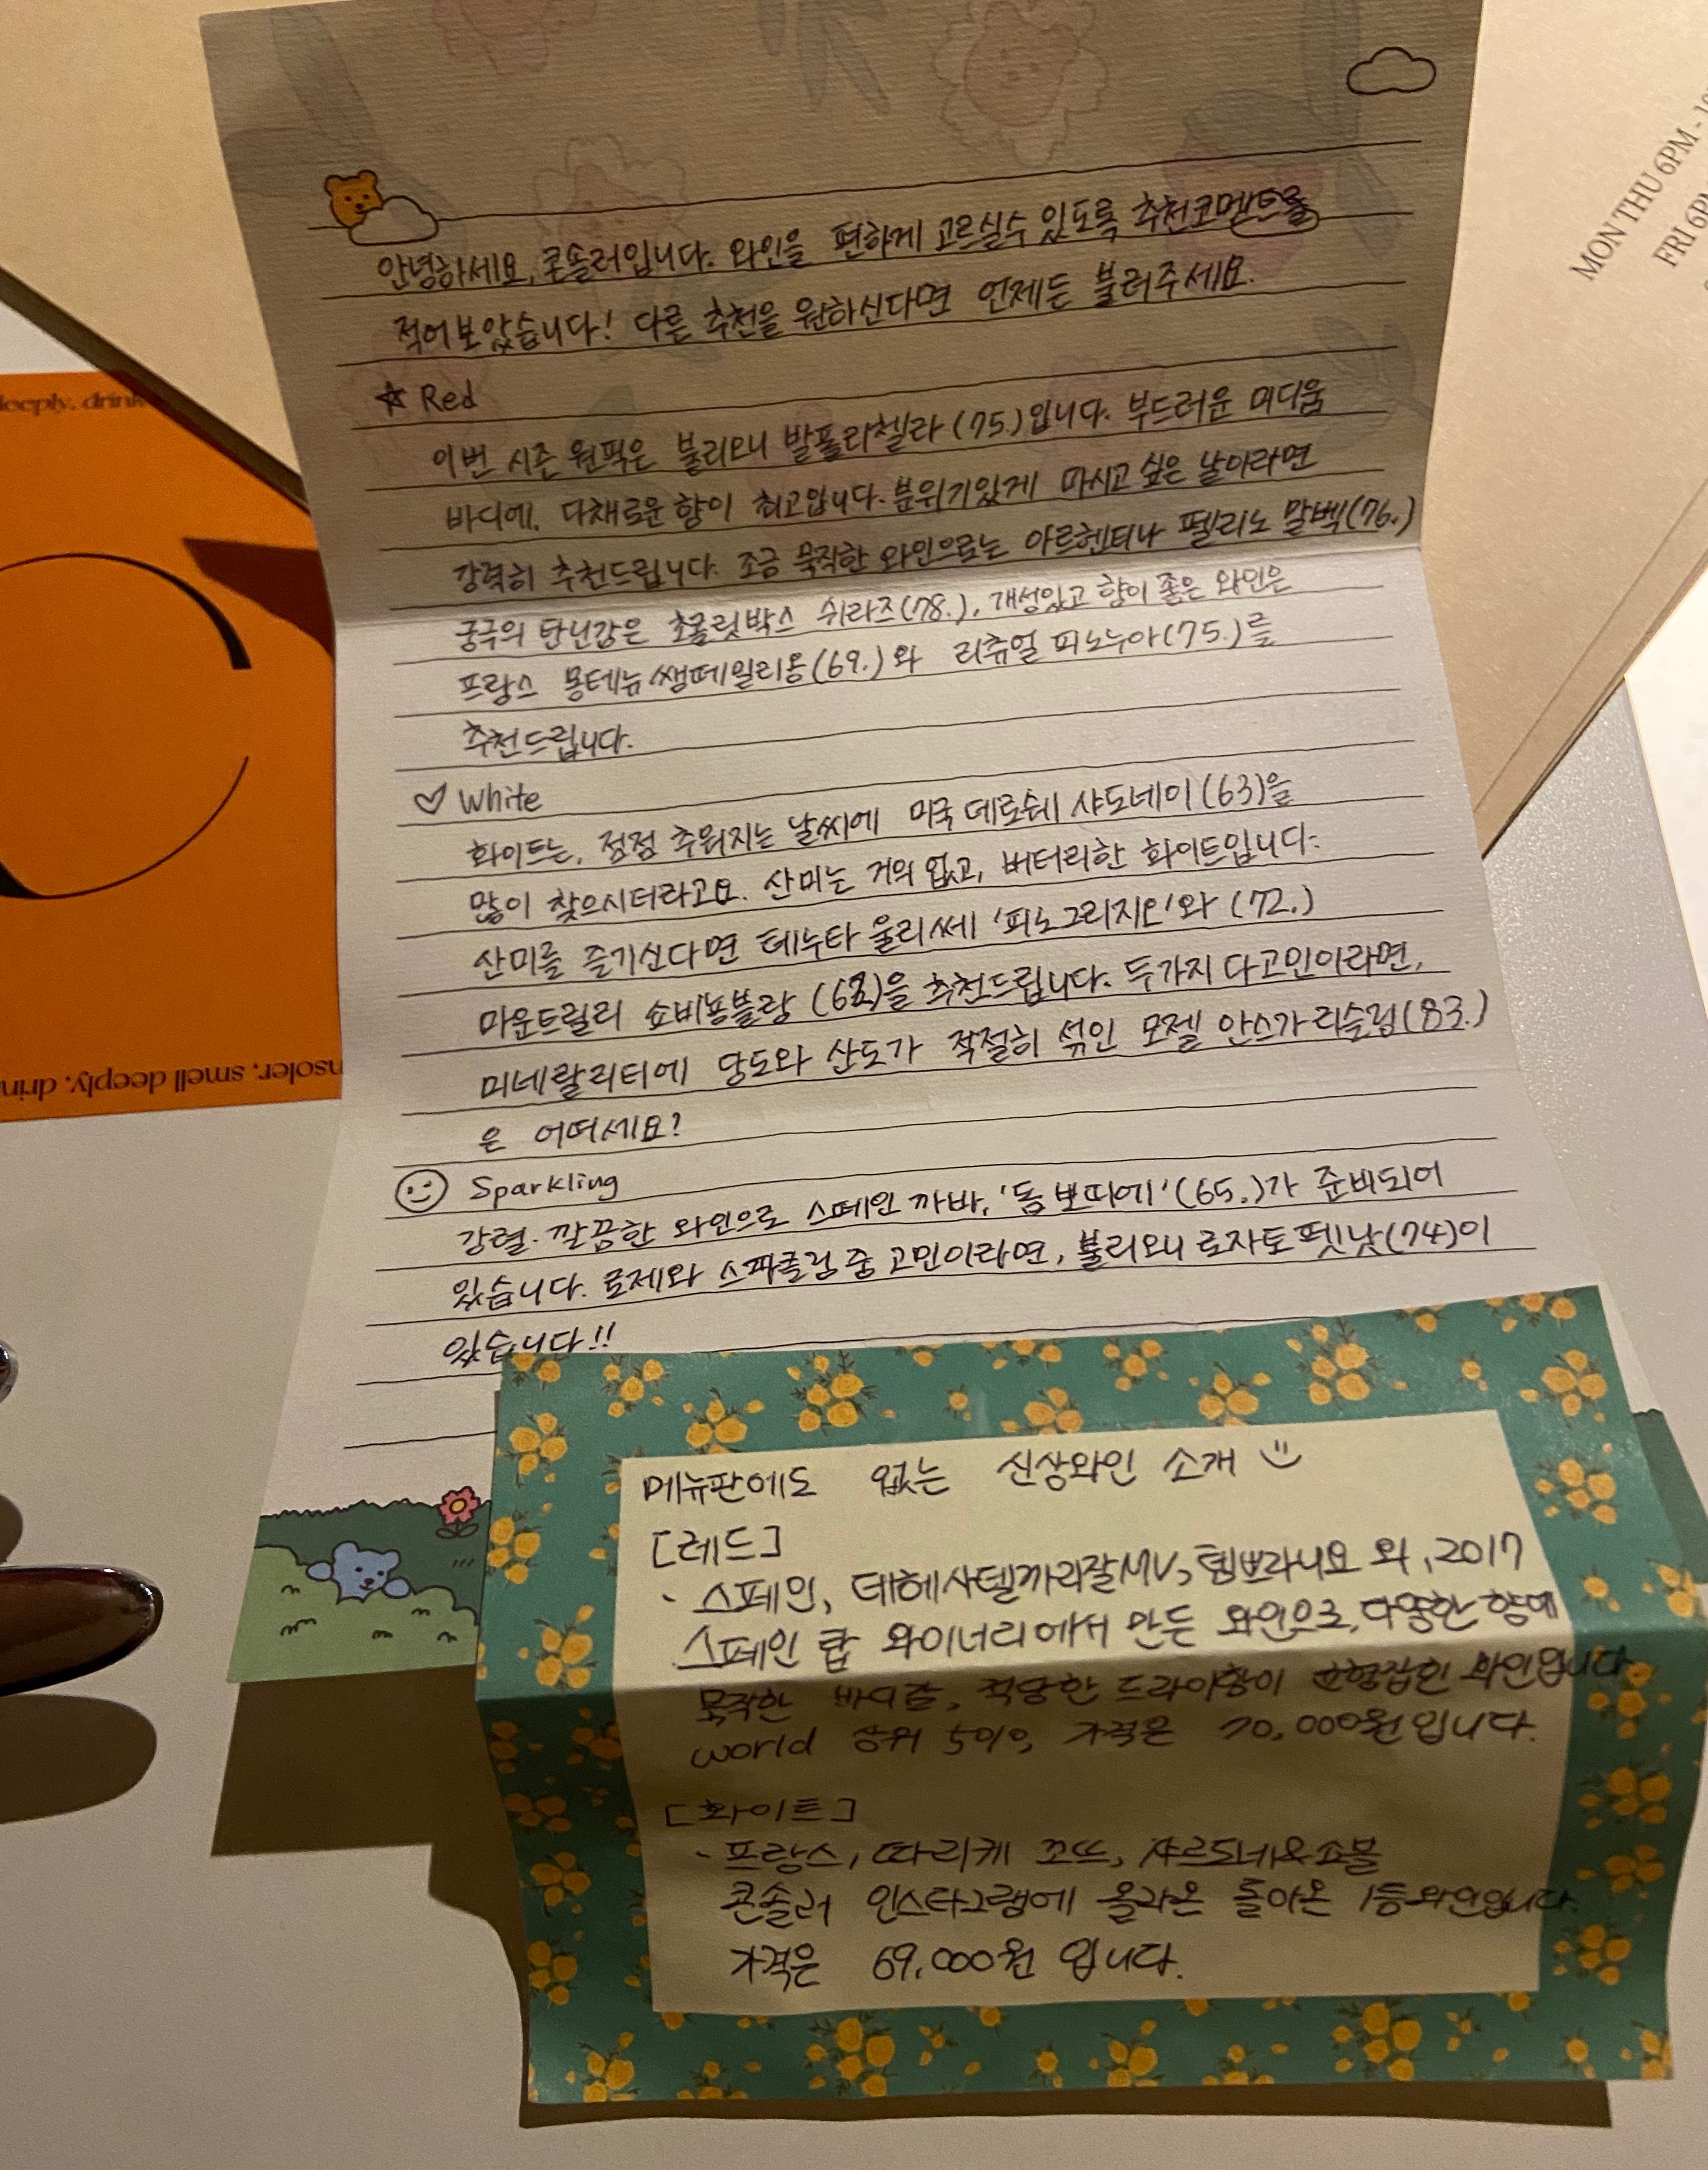 MON THU 6PM - 1
FRI 6P
eeply, drink
nsoler, smell deeply, drin
안녕하세요, 콘솔러입니다. 와인을 편하게 고르실수 있도록 추천코멘트를
적어보았습니다! 다른 추천을 원하신다면 언제든 불러주세요.
☆ Red
이번 시즌 원픽은 불리오니 발폴리첼라 (75.)입니다. 부드러운 미디움
바디에, 다채로운 향이 최고입니다. 분위기있게 마시고 싶은 날이라면
강력히 추천드립니다. 조금 묵직한 와인으로는 아르헨티나 펠리노 말벡(76.)
궁극의 탄닌감은 초콜릿박스 쉬라즈(78.), 개성있고 향이 좋은 와인은
프랑스 몽테뉴 쌩떼밀리옹(69.)와 리츄얼 피노누아(75.)를
추천드립니다.
♡ White
화이트는, 점점 추워지는 날씨에 미국 데로쉐 샤도네이(63)을
많이 찾으시더라고요. 산미는 거의 없고, 버터리한 화이트입니다.
산미를 즐기신다면 테누타 울리쎄 '피노그리지오'와 (72.)
마운트릴리 쇼비뇽블랑 을 추천드립니다. 두가지 다고민이라면,
미네랄리티에 당도와 산도가 적절히 섞인 모젤 안스가 리슬링(83.)
은 어떠세요?
Sparkling
강렬. 깔끔한 와인으로 스페인 까바, '돔 뽀띠에'(65.)가 준비되어
있습니다. 로제와 스파클링 중 고민이라면, 불리오니 로자토펫낫(74)이
있습니다!!
메뉴판에도 없는 신상와인 소개
[레드]
· 스페인, 데헤사델까리잘MV, 템쁘라니요 외, 2017
스페인 탑 와이너리에서 만든 와인으로, 다양한 향에
묵직한 바디감, 적당한 드라이함이 균형잡힌 와인입니다.
world 상위 5%, 가격은 70,000원입니다.
[화이트]
· 프랑스, 따리케 꼬뜨, 샤르도네&쇼몽
콘솔러 인스타그램에 올라온 돌아온 1등와인입니다.
가격은 69,000원 입니다.